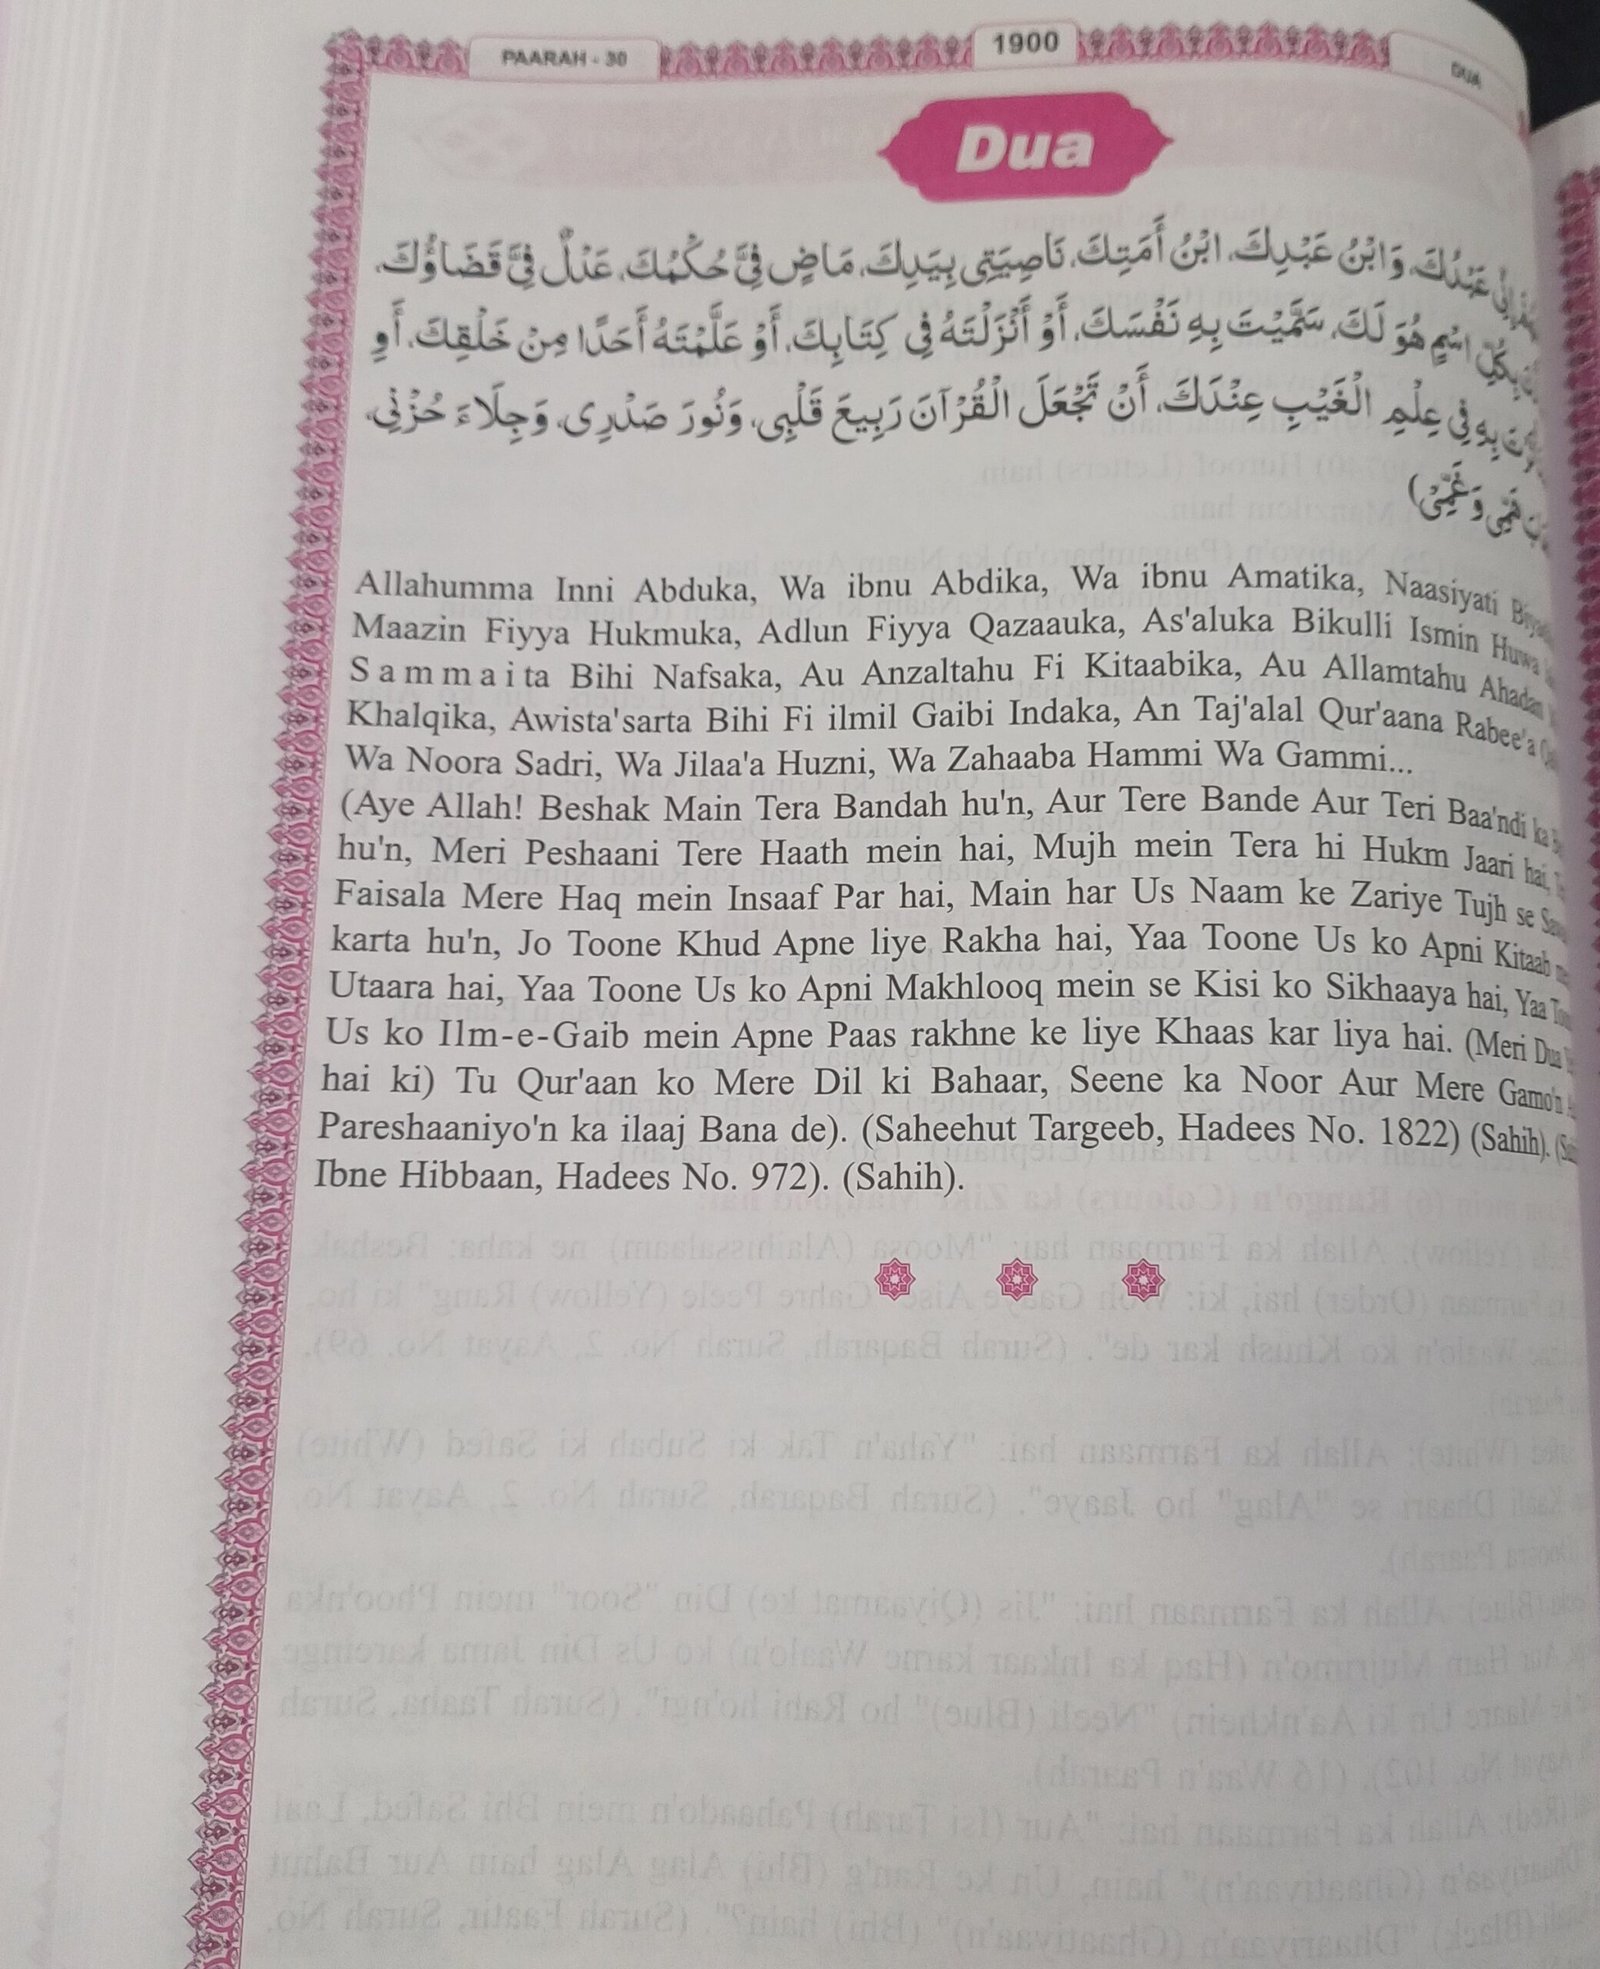 PAARAH - 30
1900
DUA
Dua
عَبْدُكَ، وَابْنُ عَبْدِكَ، ابْنُ أَمَتِكَ، نَاصِيَتِى بِيَدِكَ، مَاضٍ فِىَّ حُكْمُكَ، عَدْلٌ فِىَّ قَضَاؤُكَ،
بِكُلِّ اسْمٍ هُوَ لَكَ، سَمَّيْتَ بِهِ نَفْسَكَ، أَوْ أَنْزَلْتَهُ فِى كِتَابِكَ، أَوْ عَلَّمْتَهُ أَحَدًا مِنْ خَلْقِكَ، أَوِ
بِهِ فِى عِلْمِ الْغَيْبِ عِنْدَكَ، أَنْ تَجْعَلَ الْقُرْآنَ رَبِيعَ قَلْبِى، وَنُورَ صَدْرِى، وَجِلَاءَ حُزْنِى،
وَغَمِّىْ)
Allahumma Inni Abduka, Wa ibnu Abdika, Wa ibnu Amatika, Naasiyati
Maazin Fiyya Hukmuka, Adlun Fiyya Qazaauka, As'aluka Bikulli Ismin Huwa
Sammaita Bihi Nafsaka, Au Anzaltahu Fi Kitaabika, Au Allamtahu Ahadan
Khalqika, Awista'sarta Bihi Fi ilmil Gaibi Indaka, An Taj'alal Qur'aana Rabee'a
Wa Noora Sadri, Wa Jilaa'a Huzni, Wa Zahaaba Hammi Wa Gammi...
(Aye Allah! Beshak Main Tera Bandah hu'n, Aur Tere Bande Aur Teri Baa'ndi ka
hu'n, Meri Peshaani Tere Haath mein hai, Mujh mein Tera hi Hukm Jaari hai,
Faisala Mere Haq mein Insaaf Par hai, Main har Us Naam ke Zariye Tujh se
karta hu'n, Jo Toone Khud Apne liye Rakha hai, Yaa Toone Us ko Apni Kitaab
Utaara hai, Yaa Toone Us ko Apni Makhlooq mein se Kisi ko Sikhaaya hai, Yaa
Us ko Ilm-e-Gaib mein Apne Paas rakhne ke liye Khaas kar liya hai. (Meri Dua
hai ki) Tu Qur'aan ko Mere Dil ki Bahaar, Seene ka Noor Aur Mere Gamo'n
Pareshaaniyo'n ka ilaaj Bana de). (Saheehut Targeeb, Hadees No. 1822) (Sahih).
Ibne Hibbaan, Hadees No. 972). (Sahih).